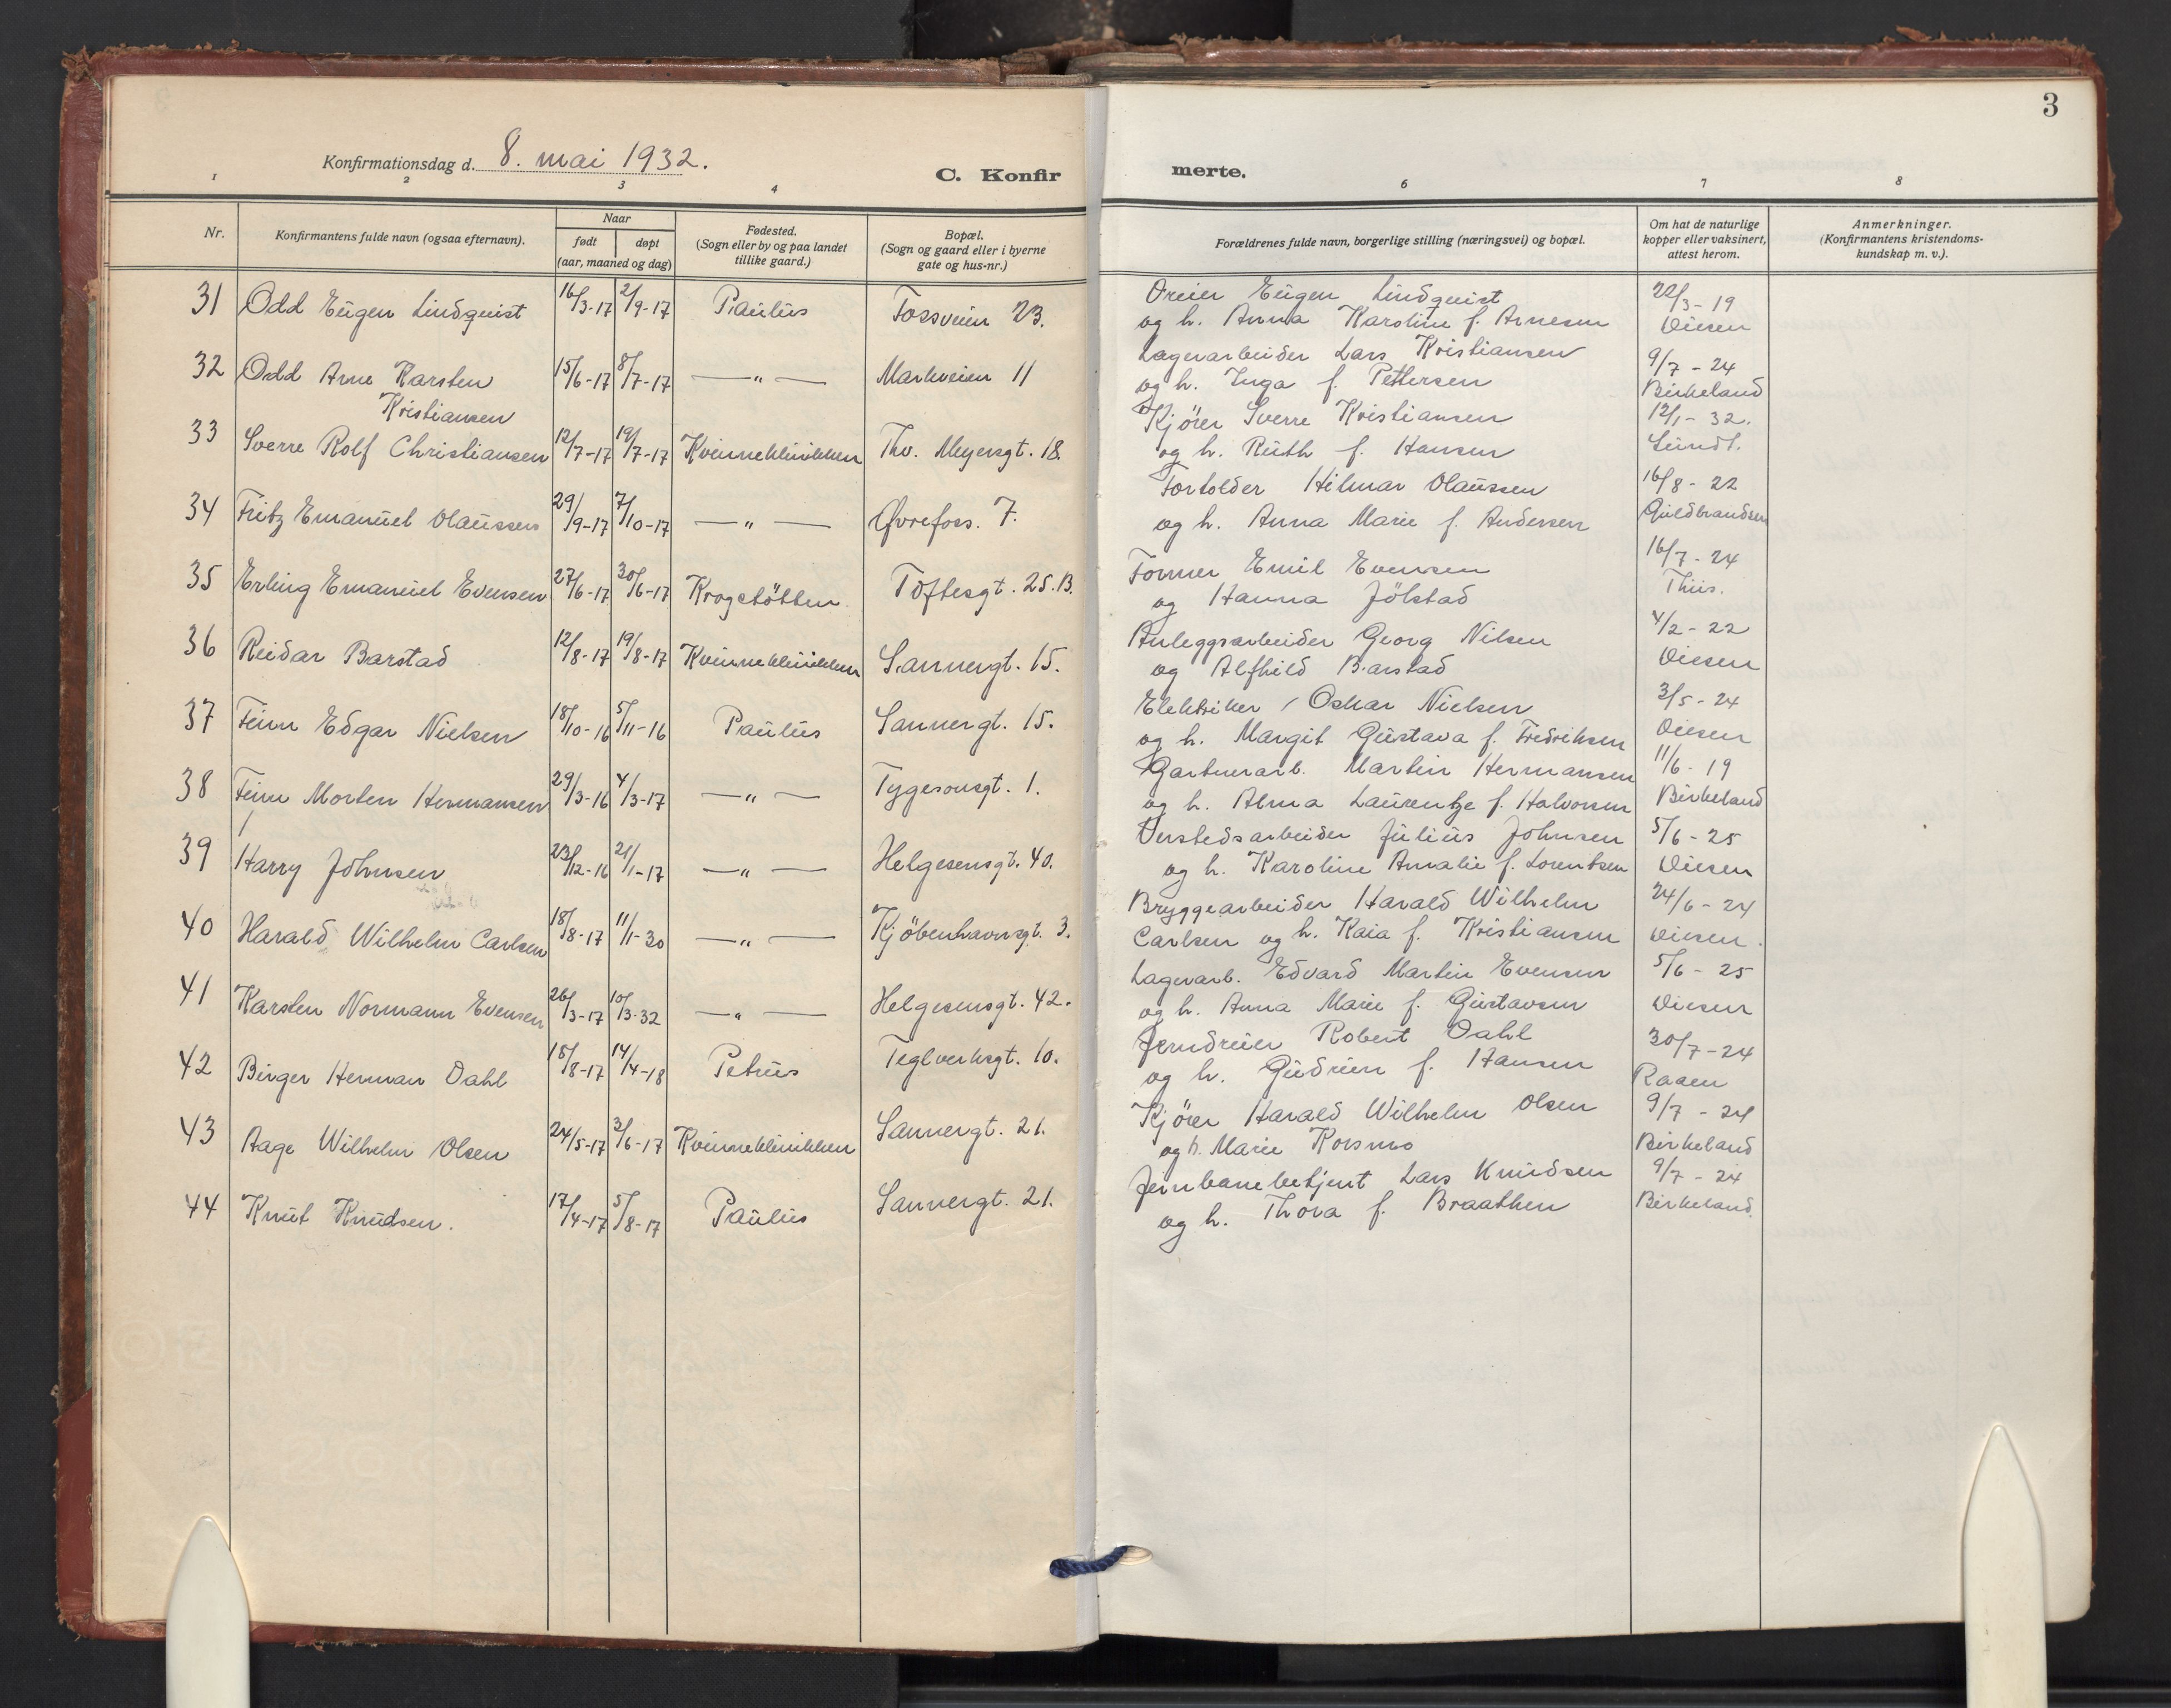 3
Konfirmationsdag d. 8. mai 1932.
C. Konfir
merte.
1 2 3 4 6 7 8
Nr.
Konfirmantens fulde navn (ogsaa efternavn).
Naar
født døpt
(aar, maaned og dag)
Fødested.
(Sogn eller by og paa landet
tillike gaard.)
Bopæl.
(Sogn og gaard eller i byerne
gate og hus-nr.)
Forældrenes fulde navn, borgerlige stilling (næringsvei) og bopæl.
Om hat de naturlige
kopper eller vaksinert,
attest herom.
Anmerkninger.
(Konfirmantens kristendoms-
kundskap m. v.).
31 Odd Eugen Lindquist 16/3-17 2/9-17 Paulus Fossveien 23.
Dreier Eugen Lindquist 22/3-19
og h. Anna Karoline f. Arnesen Diesen
32 Odd Arne Karsten 15/6-17 8/7-17 —"— Markveien 11
Kristiansen
Lagerarbeider Lars Kristiansen 9/7-24
og h. Inga f. Pettersen Birkeland
33 Sverre Rolf Christiansen 12/7-17 19/7-17 Kvinneklinikken Thv. Meyersgt. 18.
Kjörer Sverre Kristiansen 12/1-32.
og h. Ruth f. Hansen Lundt.
34 Fritz Emanuel Olaussen 29/9-17 7/10-17 —"— Øvrefoss. 7.
Fortolder Hilmar Olaussen 16/8-22
og h. Anna Marie f. Andersen Guldbrandsen
35 Erling Emanuel Evensen 27/6-17 30/6-17 Krogstötten Toftesgt. 25.B.
Former Emil Evensen 16/7-24
og Hanna Jölstad Thiis.
36 Reidar Barstad 12/8-17 19/8-17 Kvinneklinikken Sannergt. 15.
Anleggsarbeider Georg Nilsen 4/2-22
og Alfhild Barstad Diesen
37 Finn Edgar Nielsen 18/10-16 5/11-16 Paulus Sannergt. 15.
Elektriker Oskar Nielsen 3/5-24
og h. Margit Gustava f. Fredriksen Diesen
38 Finn Morten Hermansen 29/3-16 4/3-17 —"— Tygesonsgt. 1.
Gartnerarb. Martin Hermansen 11/6-19
og h. Alma Laurentze f. Halvorsen Birkeland
39 Harry Johnsen 23/12-16 21/1-17 —"— Helgesensgt. 40.
Verstedsarbeider Julius Johnsen 5/6-25
og h. Karoline Amalie f. Lorentsen Diesen
40 Harald Wilhelm Carlsen 18/8-17 11/1-30 —"— Kjöbenhavnsgt. 3.
Bryggearbeider Harald Wilhelm 24/6-24
Carlsen og h. Kaia f. Kristiansen Diesen.
41 Karsten Normann Evensen 26/3-17 10/3-32 —"— Helgesensgt. 42.
Lagerarb. Edvard Martin Evensen 5/6-25
og h. Anna Marie f. Gustavsen Diesen
42 Birger Herman Dahl 18/8-17 14/4-18 Petrus Teglverksgt. 10.
Jerndreier Robert Dahl 30/7-24
og h. Gudrun f. Hansen Raaen
43 Aage Wilhelm Olsen 24/5-17 3/6-17 Kvinneklinikken Sannergt. 21.
Kjörer Harald Wilhelm Olsen 9/7-24
og h. Marie Korsmo Birkeland
44 Knut Knudsen. 17/4-17 5/8-17 Paulus Sannergt. 21.
Jernbanebetjent Lars Knudsen 9/7-24
og h. Thora f. Braathen Birkeland.